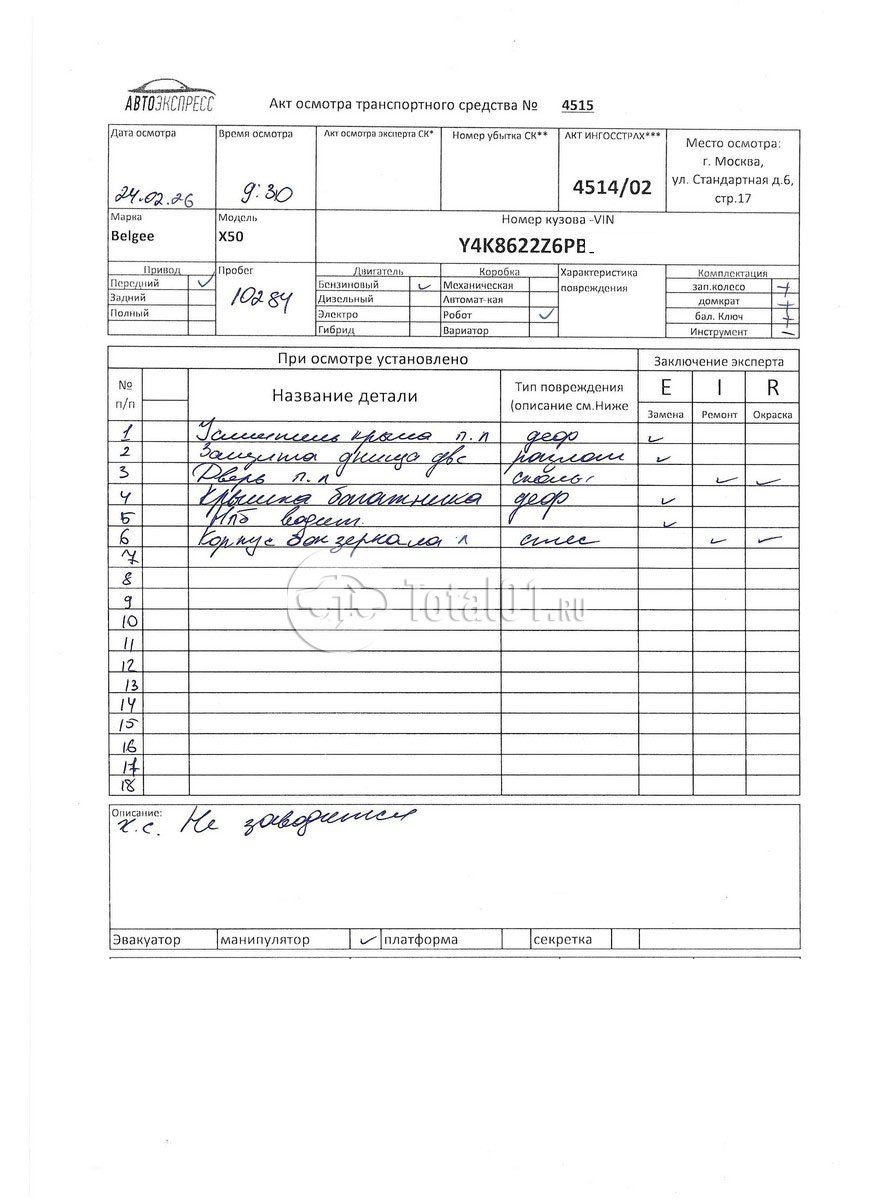 АВТОЭКСПРЕСС
Акт осмотра транспортного средства № 4515
Дата осмотра Время осмотра Акт осмотра эксперта СК* Номер убытка СК** АКТ ИНГОССТРАХ*** Место осмотра:
г. Москва,
ул. Стандартная д.6,
стр.17
24.02.26 9:30 4514/02
Марка Модель Номер кузова -VIN
Belgee X50 Y4K8622Z6PB_
Привод Пробег Двигатель Коробка Характеристика повреждения Комплектация
Передний ✓ 10284 Бензиновый ✓ Механическая зап.колесо +
Задний Дизельный Автомат-кая домкрат +
Полный Электро Робот ✓ бал. Ключ +
Гибрид Вариатор Инструмент –
При осмотре установлено Заключение эксперта
№ п/п Название детали Тип повреждения (описание см.Ниже E I R
Замена Ремонт Окраска
1 Усилитель крыла п.л деф ✓
2 Защита днища двс разлом ✓
3 Дверь п.л сколы ✓ ✓
4 Крышка багажника деф ✓
5 НПБ водит. ✓
6 Корпус бок зеркала л стес ✓ ✓
7
8
9
10
11
12
13
14
15
16
17
18
Total01.RU
Описание:
х.с. Не заводится
Эвакуатор манипулятор ✓ платформа секретка